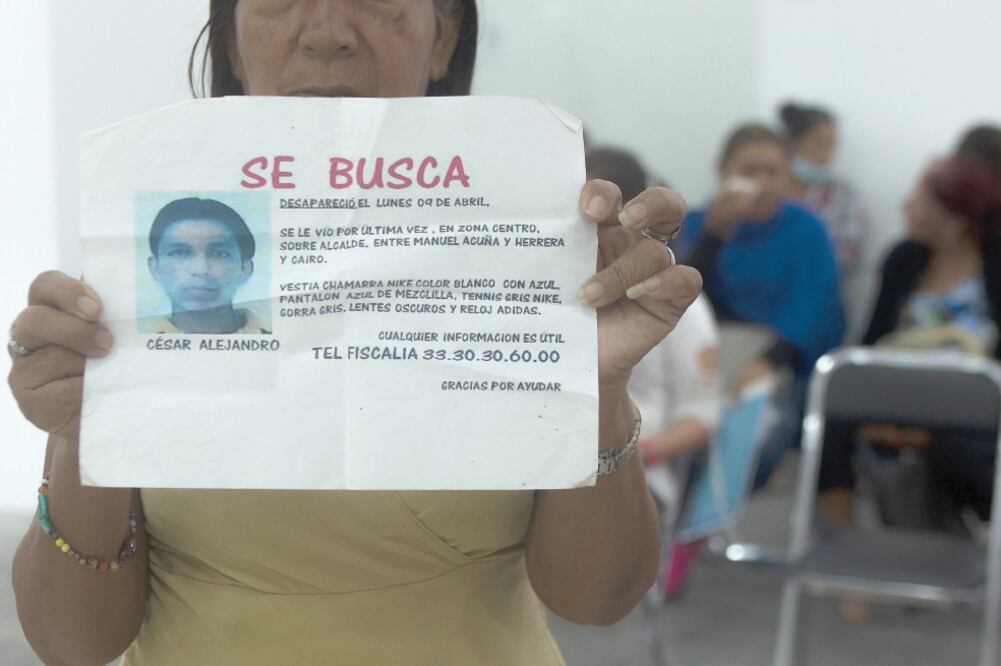 SE BUSCA
DESAPARECIÓ EL LUNES 09 DE ABRIL.
SE LE VIO POR ÚLTIMA VEZ, EN ZONA CENTRO,
SOBRE ALCALDE, ENTRE MANUEL ACUÑA Y HERRERA
Y CAIRO.
VESTIA CHAMARRA NIKE COLOR BLANCO CON AZUL,
PANTALON AZUL DE MEZCLILLA, TENNIS GRIS NIKE,
GORRA GRIS, LENTES OSCUROS Y RELOJ ADIDAS.
CÉSAR ALEJANDRO
CUALQUIER INFORMACION ES ÚTIL
TEL FISCALIA 33.30.30.60.00
GRACIAS POR AYUDAR